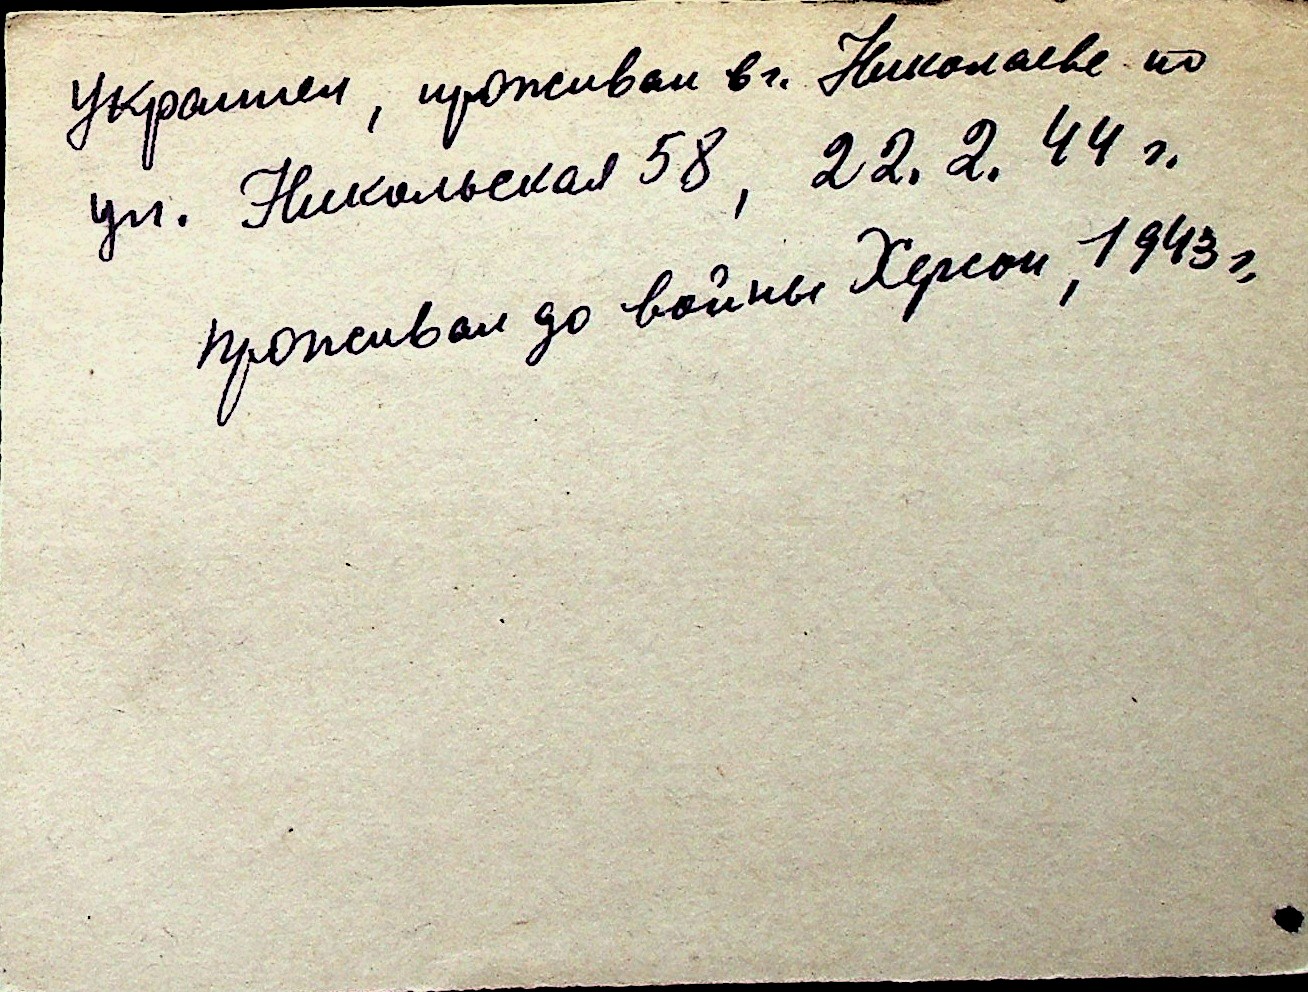 Украинец, проживал в г. Николаеве по
ул. Никольская 58, 22. 2. 44 г.
проживал до войны Херсон, 1943 г.